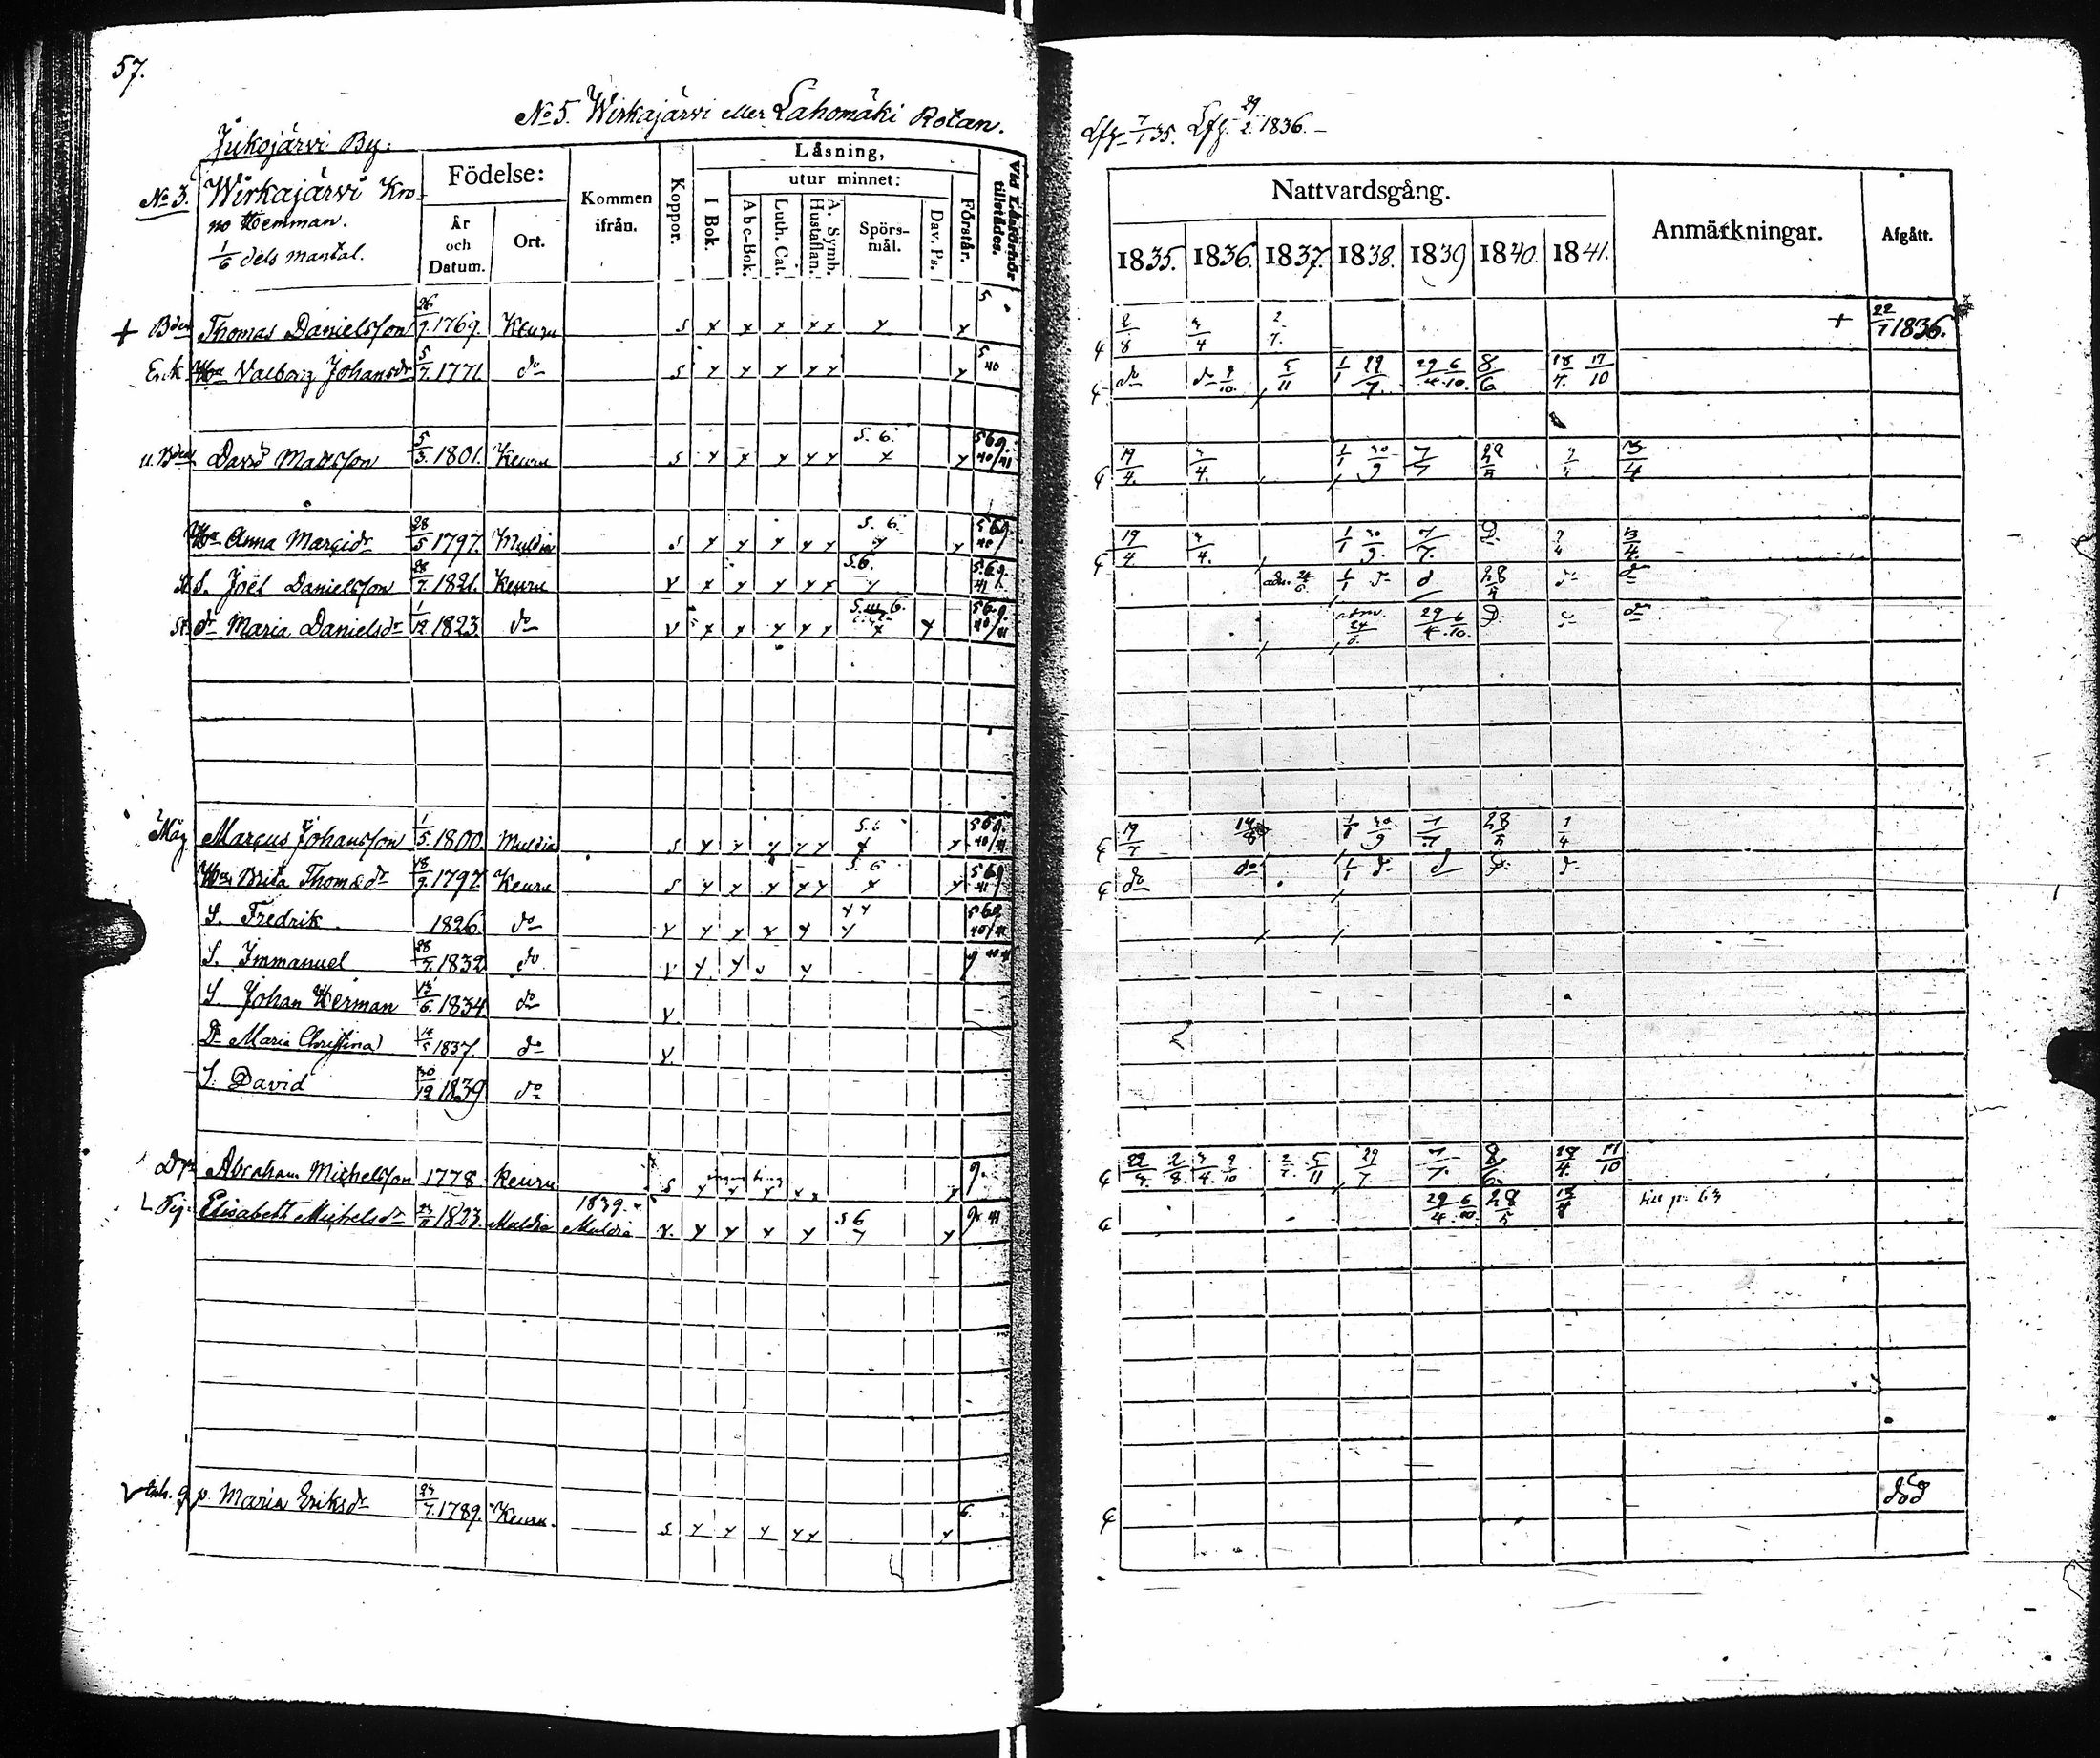 57.
No 5. Wirkajärvi eller Lahomäki Rotan.
Jukojärvi By.
No 3. Wirkajärvi Kro-
no Hemman.
1/6 dels mantal.
Födelse:
År och Datum.
Ort.
Kommen ifrån.
Koppor.
Läsning,
I Bok.
utur minnet:
Abc-Bok.
Luth. Cat.
A. Symb. Hustaflan.
Spörs-mål.
Dav. Ps.
Förstår.
Vid Läsförhör tillstädes.
+ Bden Thomas Danielsson 26/9 1769. Keuru s x x x x x x x 5
Enk. Hu Valborg Johansdr 5/7 1771. do s x x x x x x 5 40
u. Bden David Mattsson 5/3. 1801. Keuru s x x x x x 5. 6. x x 5 6 9. 40/41
Hu Anna Marcidr 28/5 1797. Muldia s x x x x x 5. 6. x x 5 6 9. 40
St. S. Joël Danielsson 28/7. 1821. Keuru v x x x x x 5. 6. x 5. 6. 9. 41
St. dr Maria Danielsdr 1/12 1823. do v x x x x x x x 5 6 9. 40/41
Måg Marcus Johansson 1/5. 1800. Muldia s x x x x x 5. 6 x x 5 6 9. 40/41
Hu Brita Thomædr 18/9. 1797. Keuru s x x x x x 5. 6 x x 5 6 9 41
S. Fredrik 1826. do v x x x x 5 6 9 40/41
S. Immanuel 28/7. 1832 do v
S Johan Herman 13/6. 1834. do v
Dr Maria Christina 14/5 1837. do v.
S. David 30/12 1839 do
Dr Abraham Michelsson 1778 Keuru s 9.
Pig. Elisabeth Michelsdr 23/11 1823. Muldia 1839. Muldia v. x x x x 5 6 x x 9. 41
Inh. q. p. Maria Eriksdr 24/7. 1789. Keuru. s x x x x x x 6.
Lfg 7/1 35. Lfg. 29/2. 1836.
Nattvardsgång.
1835. 1836. 1837. 1838. 1839 1840. 1841.
Anmärkningar.
Afgått.
2/8 3/4 2/7. + 22/1 1836.
do do 9/10 5/11 1/1 29/7. 29/4 6/10. 8/6 18/7. 17/10
19/4. 3/4. 1/1 30/9 7/7 28/5 3/4
19/4. 3/4. 1/1 30/9. 7/7. D. 3/4.
adm. 24/6 1/1 do d 28/5 do do
adm. 24/6. 29/4 6/10. D. do
19/7 14/8 1/1 30/9 7/7 28/5 1/4
do do 1/1 do d D. do
22/7. 2/8. 3/4. 9/10 2/7 5/11 29/7. 7/7. 8/6 18/4. 17/10
29/4 6/10. 28/5 till p. 63
död